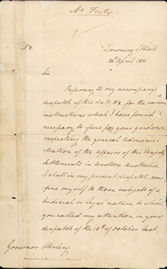 No Forty
Downing Street
April
Sir
Referring to my accompanying
despatch of this date No for the
instructions which I have found it
necessary to for your guidance
respecting the general adminis-
tration of the affairs of the
Settlements in Western Australia,
I shall in my present despatch, con-
fine myself to those subjects of a
Judicial or legal nature to which
you called my attention, in your
despatch of the of October last,
Governor